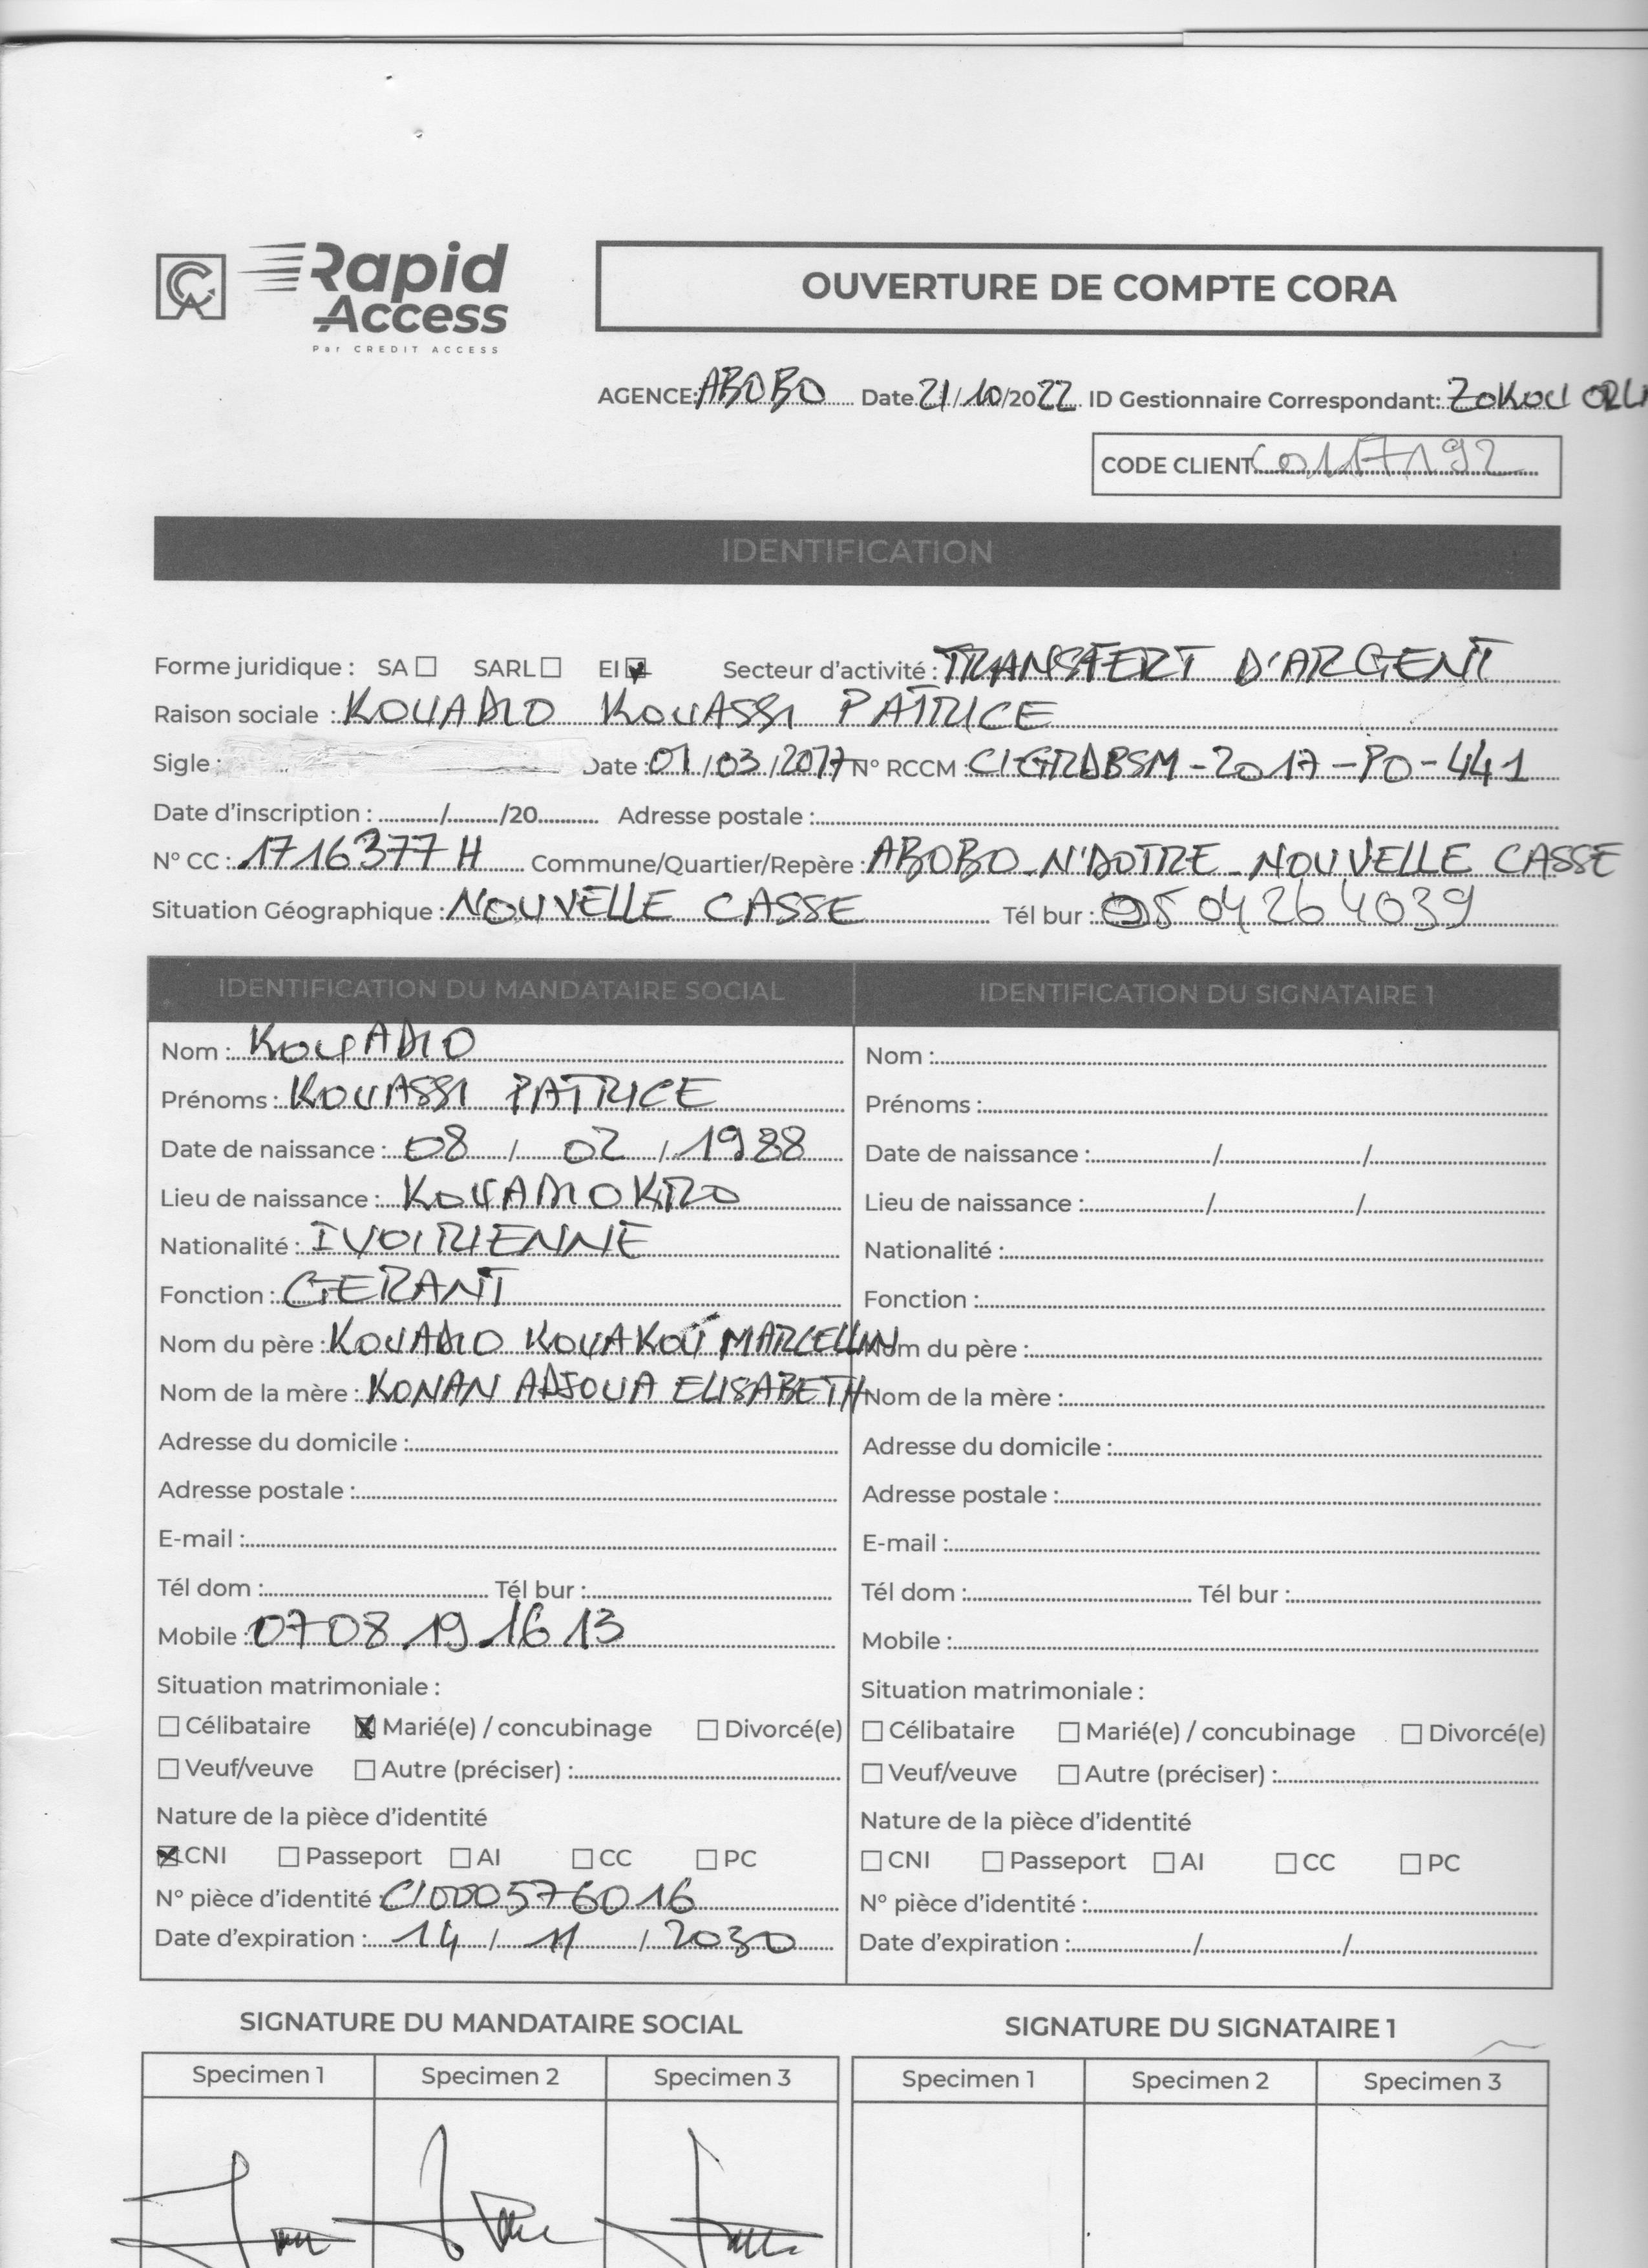 Rapid
Access
Par CREDIT ACCESS
OUVERTURE DE COMPTE CORA
AGENCE: ABOBO Date 21/10/2022 ID Gestionnaire Correspondant: ZOKOU
CODE CLIENT C0117192
IDENTIFICATION
Forme juridique : SA ☐ SARL ☐ EI ☑ Secteur d'activité : TRANSFERT D'ARGENT
Raison sociale : KOUADIO KOUASSI PATRICE
Sigle : Date : 01/03/2017 N° RCCM : CIGRDBSM-2017-PO-441
Date d'inscription : ........../........./20.......... Adresse postale :
N° CC : 1716377 H Commune/Quartier/Repère : ABOBO-N'DOTRE-NOUVELLE CASSE
Situation Géographique : NOUVELLE CASSE Tél bur : 05 04 26 40 39
IDENTIFICATION DU MANDATAIRE SOCIAL
Nom : KOUADIO
Prénoms : KOUASSI PATRICE
Date de naissance : 08 / 02 / 1988
Lieu de naissance : KOUADIOKRO
Nationalité : IVOIRIENNE
Fonction : GERANT
Nom du père : KOUADIO KOUAKOU MARCELLIN
Nom de la mère : KONAN ADJOUA ELISABETH
Adresse du domicile :
Adresse postale :
E-mail :
Tél dom : Tél bur :
Mobile : 07 08 19 16 13
Situation matrimoniale :
☐ Célibataire ☒ Marié(e) / concubinage ☐ Divorcé(e)
☐ Veuf/veuve ☐ Autre (préciser) :
Nature de la pièce d'identité
☒ CNI ☐ Passeport ☐ AI ☐ CC ☐ PC
N° pièce d'identité : CI000576016
Date d'expiration : 14 / 11 / 2030
IDENTIFICATION DU SIGNATAIRE 1
Nom :
Prénoms :
Date de naissance : / /
Lieu de naissance : / /
Nationalité :
Fonction :
Nom du père :
Nom de la mère :
Adresse du domicile :
Adresse postale :
E-mail :
Tél dom : Tél bur :
Mobile :
Situation matrimoniale :
☐ Célibataire ☐ Marié(e) / concubinage ☐ Divorcé(e)
☐ Veuf/veuve ☐ Autre (préciser) :
Nature de la pièce d'identité
☐ CNI ☐ Passeport ☐ AI ☐ CC ☐ PC
N° pièce d'identité :
Date d'expiration : / /
SIGNATURE DU MANDATAIRE SOCIAL
Specimen 1 Specimen 2 Specimen 3
SIGNATURE DU SIGNATAIRE 1
Specimen 1 Specimen 2 Specimen 3